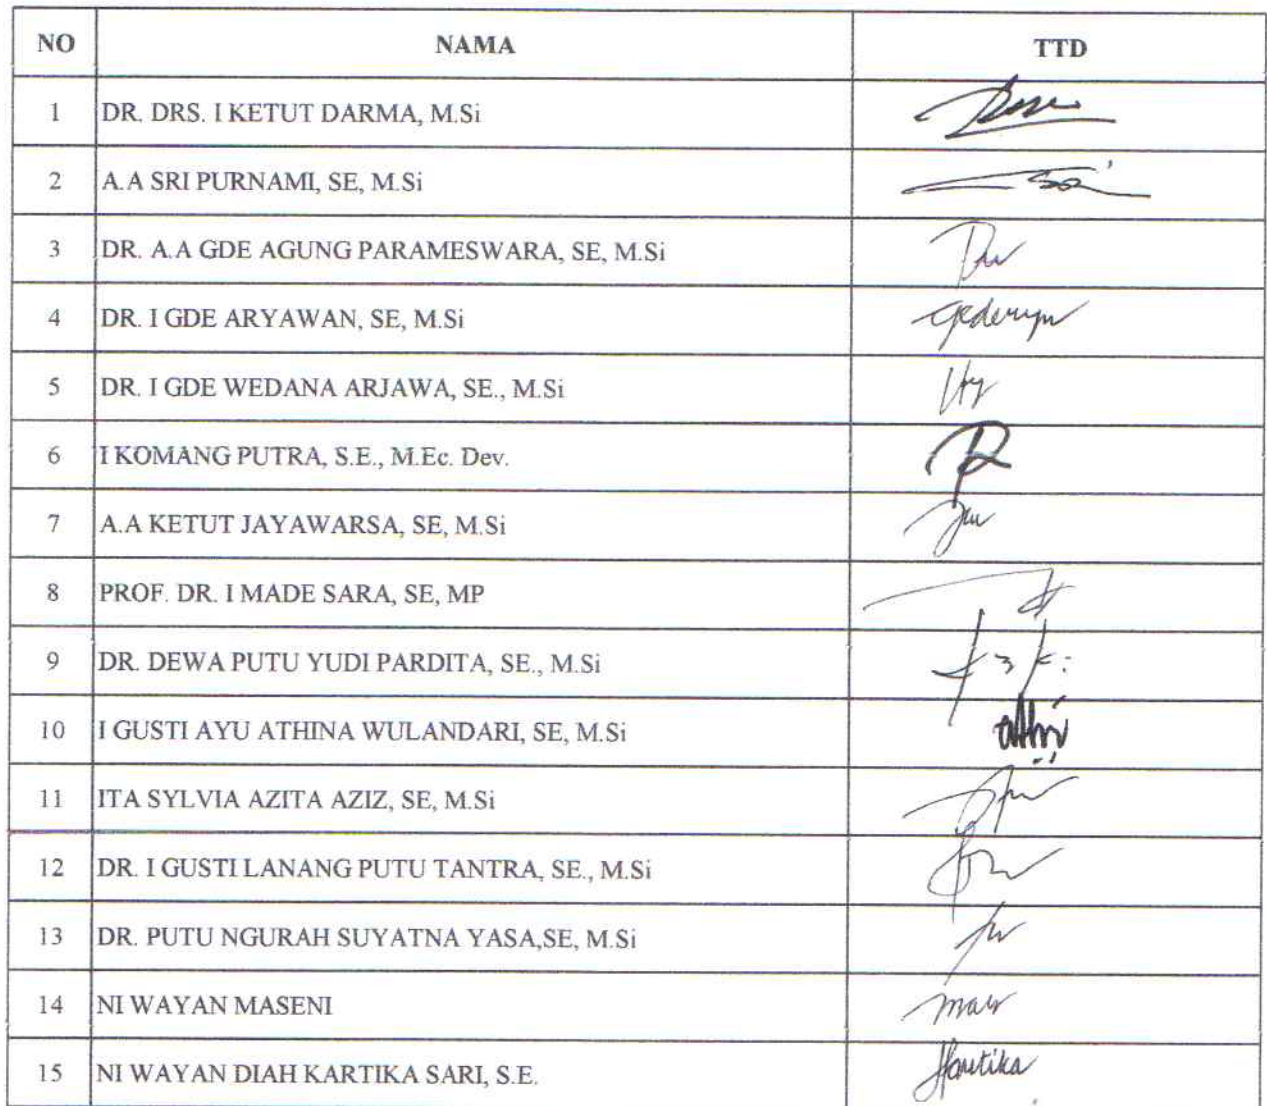 NO NAMA TTD
1 DR. DRS. I KETUT DARMA, M.Si
2 A.A SRI PURNAMI, SE, M.Si
3 DR. A.A GDE AGUNG PARAMESWARA, SE, M.Si
4 DR. I GDE ARYAWAN, SE, M.Si
5 DR. I GDE WEDANA ARJAWA, SE., M.Si
6 I KOMANG PUTRA, S.E., M.Ec. Dev.
7 A.A KETUT JAYAWARSA, SE, M.Si
8 PROF. DR. I MADE SARA, SE, MP
9 DR. DEWA PUTU YUDI PARDITA, SE., M.Si
10 I GUSTI AYU ATHINA WULANDARI, SE, M.Si
11 ITA SYLVIA AZITA AZIZ, SE, M.Si
12 DR. I GUSTI LANANG PUTU TANTRA, SE., M.Si
13 DR. PUTU NGURAH SUYATNA YASA,SE, M.Si
14 NI WAYAN MASENI
15 NI WAYAN DIAH KARTIKA SARI, S.E.